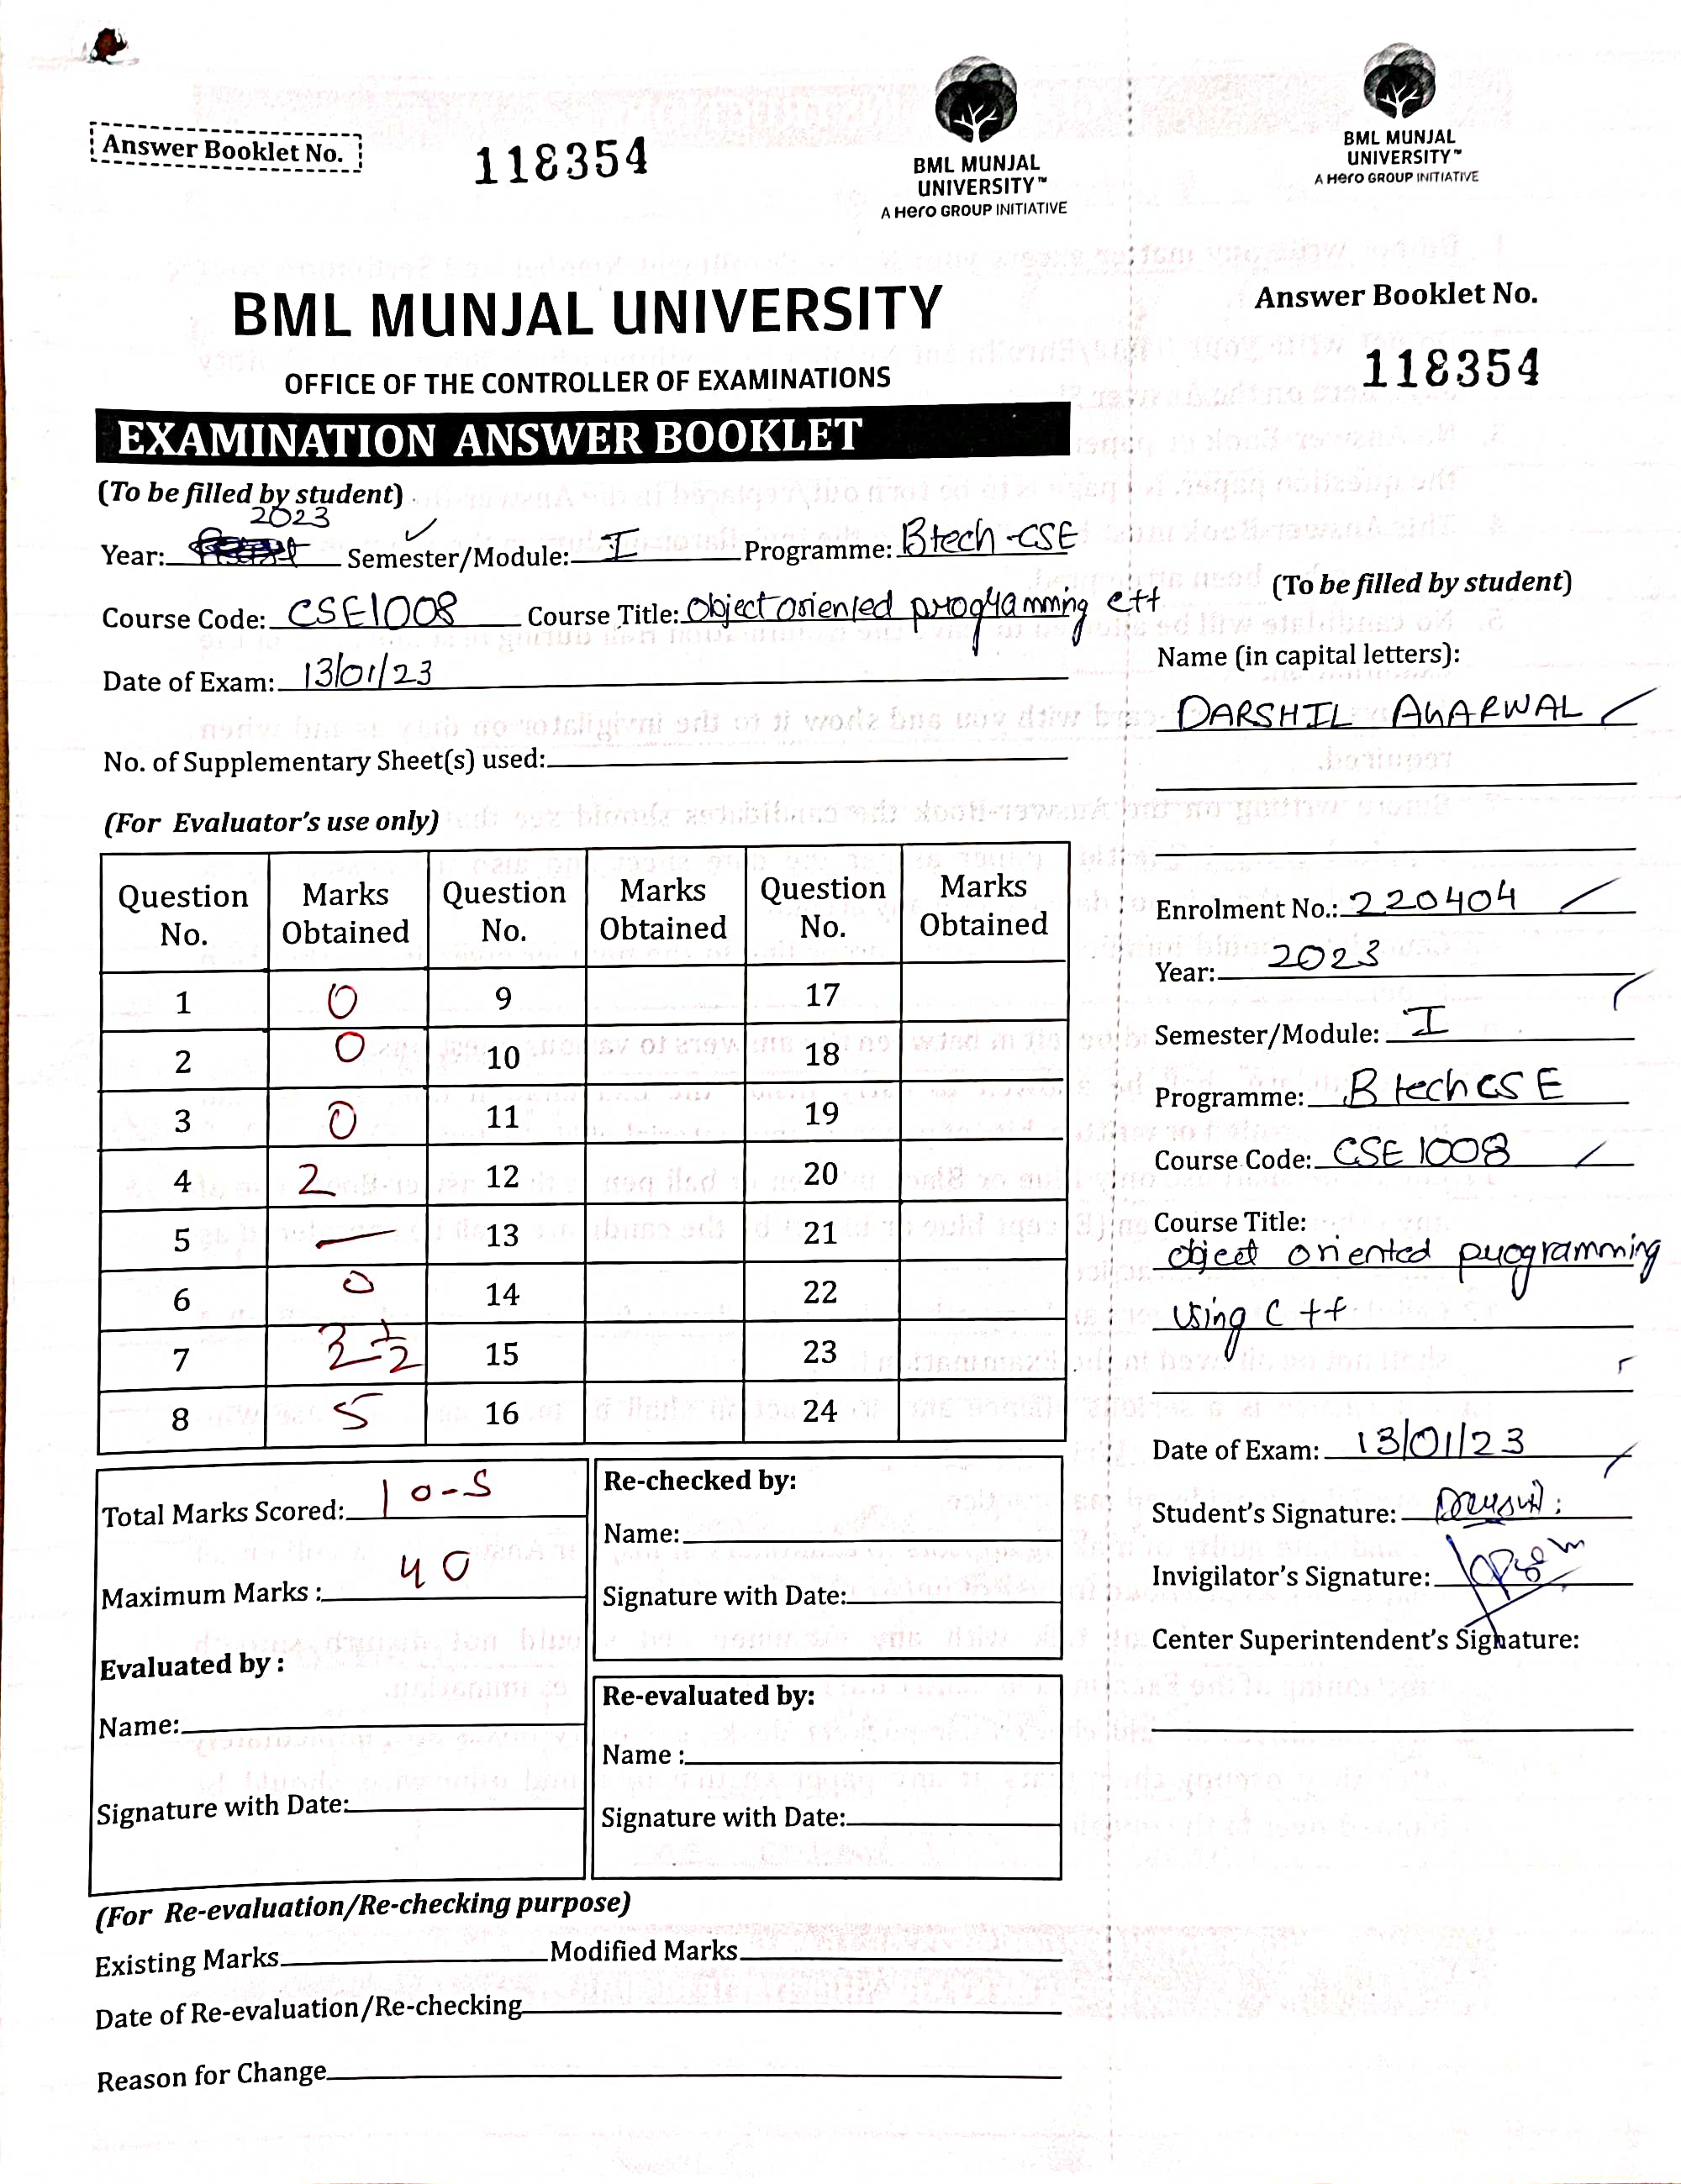 Answer Booklet No.
118354
BML MUNJAL
UNIVERSITY™
A Hero GROUP INITIATIVE
BML MUNJAL UNIVERSITY
OFFICE OF THE CONTROLLER OF EXAMINATIONS
EXAMINATION ANSWER BOOKLET
(To be filled by student)
2023
Year: Semester/Module: I Programme: Btech-CSE
Course Code: CSE1008 Course Title: Object oriented programming C++
Date of Exam: 13/01/23
No. of Supplementary Sheet(s) used:
(For Evaluator's use only)
Question No. Marks Obtained Question No. Marks Obtained Question No. Marks Obtained
1 0 9 17
2 0 10 18
3 0 11 19
4 2 12 20
5 — 13 21
6 0 14 22
7 3 1/2 15 23
8 5 16 24
Total Marks Scored: 10-5
Maximum Marks : 40
Evaluated by :
Name:
Signature with Date:
Re-checked by:
Name:
Signature with Date:
Re-evaluated by:
Name :
Signature with Date:
(For Re-evaluation/Re-checking purpose)
Existing Marks Modified Marks
Date of Re-evaluation/Re-checking
Reason for Change
BML MUNJAL
UNIVERSITY™
A Hero GROUP INITIATIVE
Answer Booklet No.
118354
(To be filled by student)
Name (in capital letters):
DARSHIL AGARWAL
Enrolment No.: 220404
Year: 2023
Semester/Module: I
Programme: B tech CSE
Course Code: CSE 1008
Course Title:
object oriented programming
using C ++
Date of Exam: 13/01/23
Student's Signature: Darshil
Invigilator's Signature:
Center Superintendent's Signature: